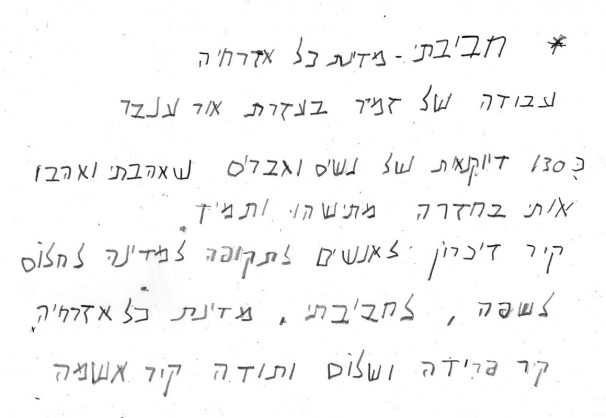 * חביבתי - מדינת כל אזרחיה
עבודה של זמיר בעזרת אור ענבר
כ 130 דיוקנאות של נשים וגברים שאהבתי ואהבו
אותי בחדרה מתישהו ותמיד
קיר זיכרון לאנשים לתקופה למדינה לחלום
לשפה, לחביבתי. מדינת כל אזרחיה.
קיר פרידה ושלום ותודה קיר אשמה